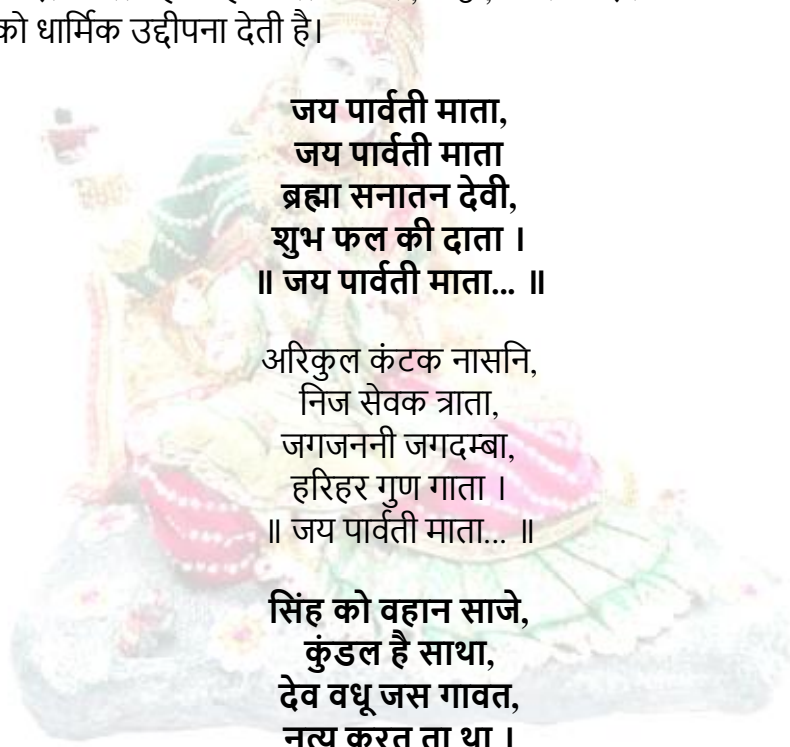 को धार्मिक उद्दीपना देती है।
जय पार्वती माता,
जय पार्वती माता
ब्रह्मा सनातन देवी,
शुभ फल की दाता ।
॥ जय पार्वती माता... ॥
अरिकुल कंटक नासनि,
निज सेवक त्राता,
जगजननी जगदम्बा,
हरिहर गुण गाता ।
॥ जय पार्वती माता... ॥
सिंह को वहान साजे,
कुंडल है साथा,
देव वधू जस गावत,
नृत्य करत ता था ।